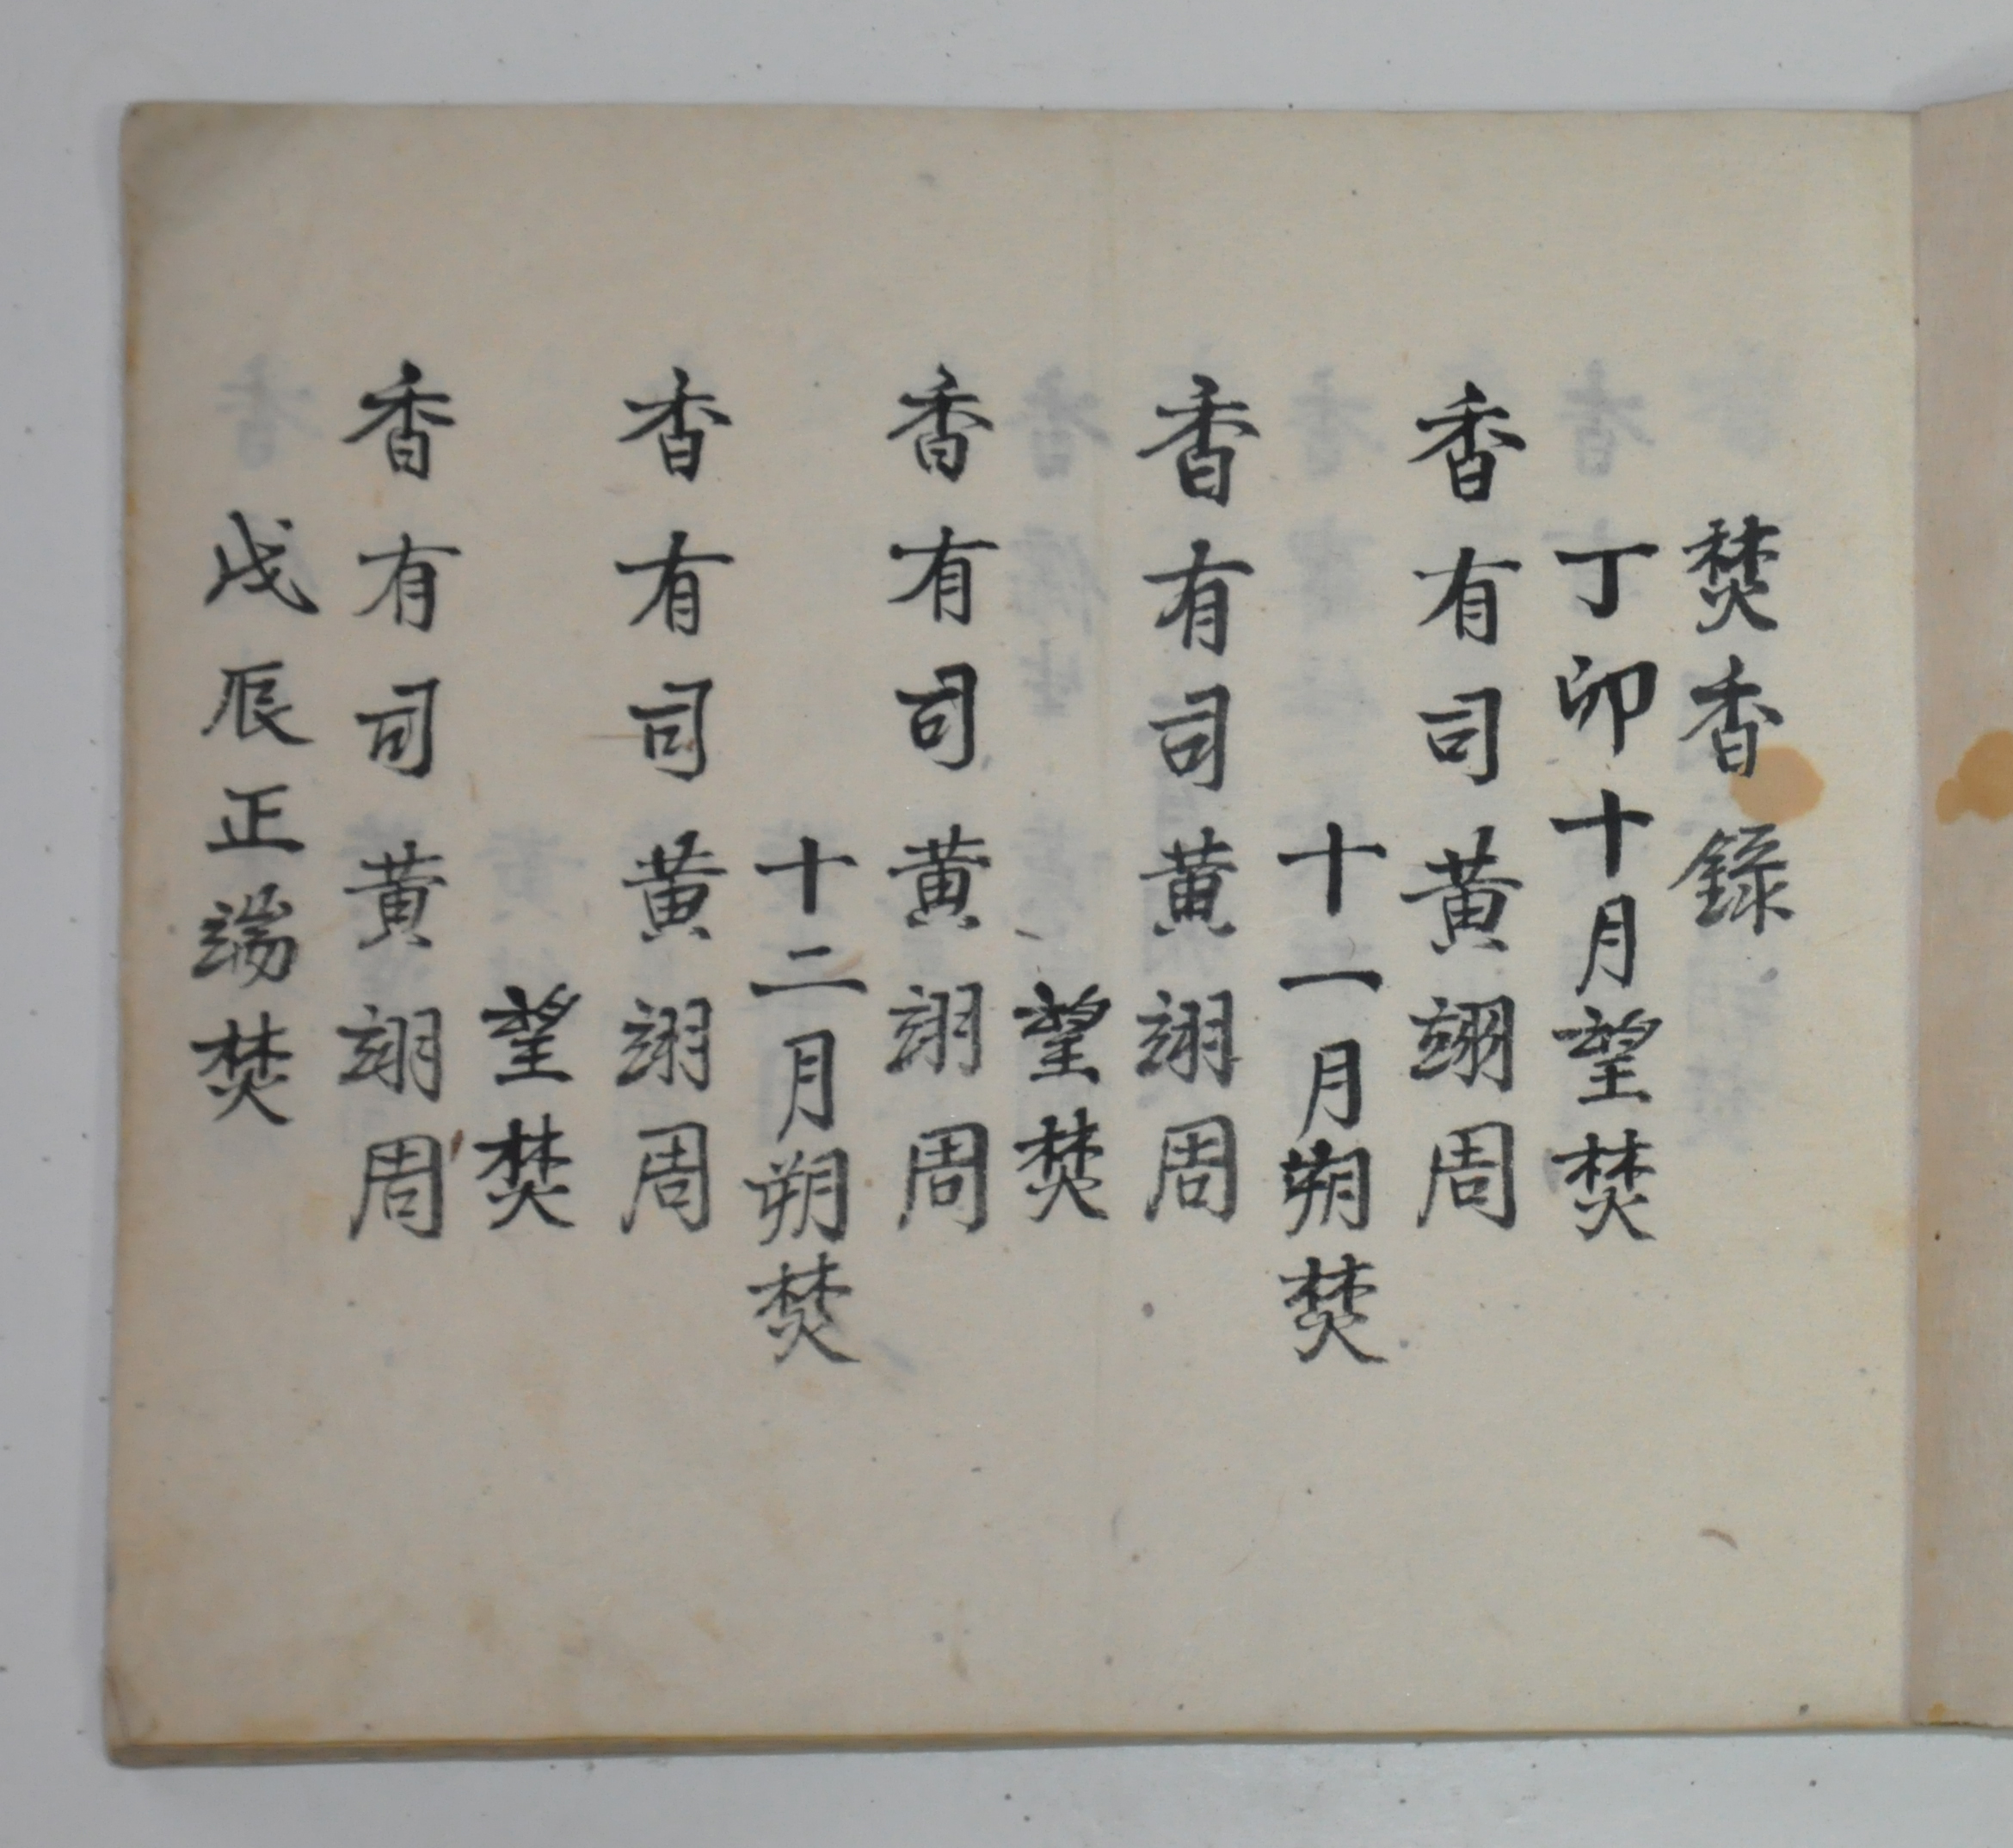 焚香錄
丁卯十月望焚
香有司黃翊周
十一月朔焚
香有司黃翊周
望焚
香有司黃翊周
十二月朔焚
香有司黃翊周
望焚
香有司黃翊周
戊辰正端焚